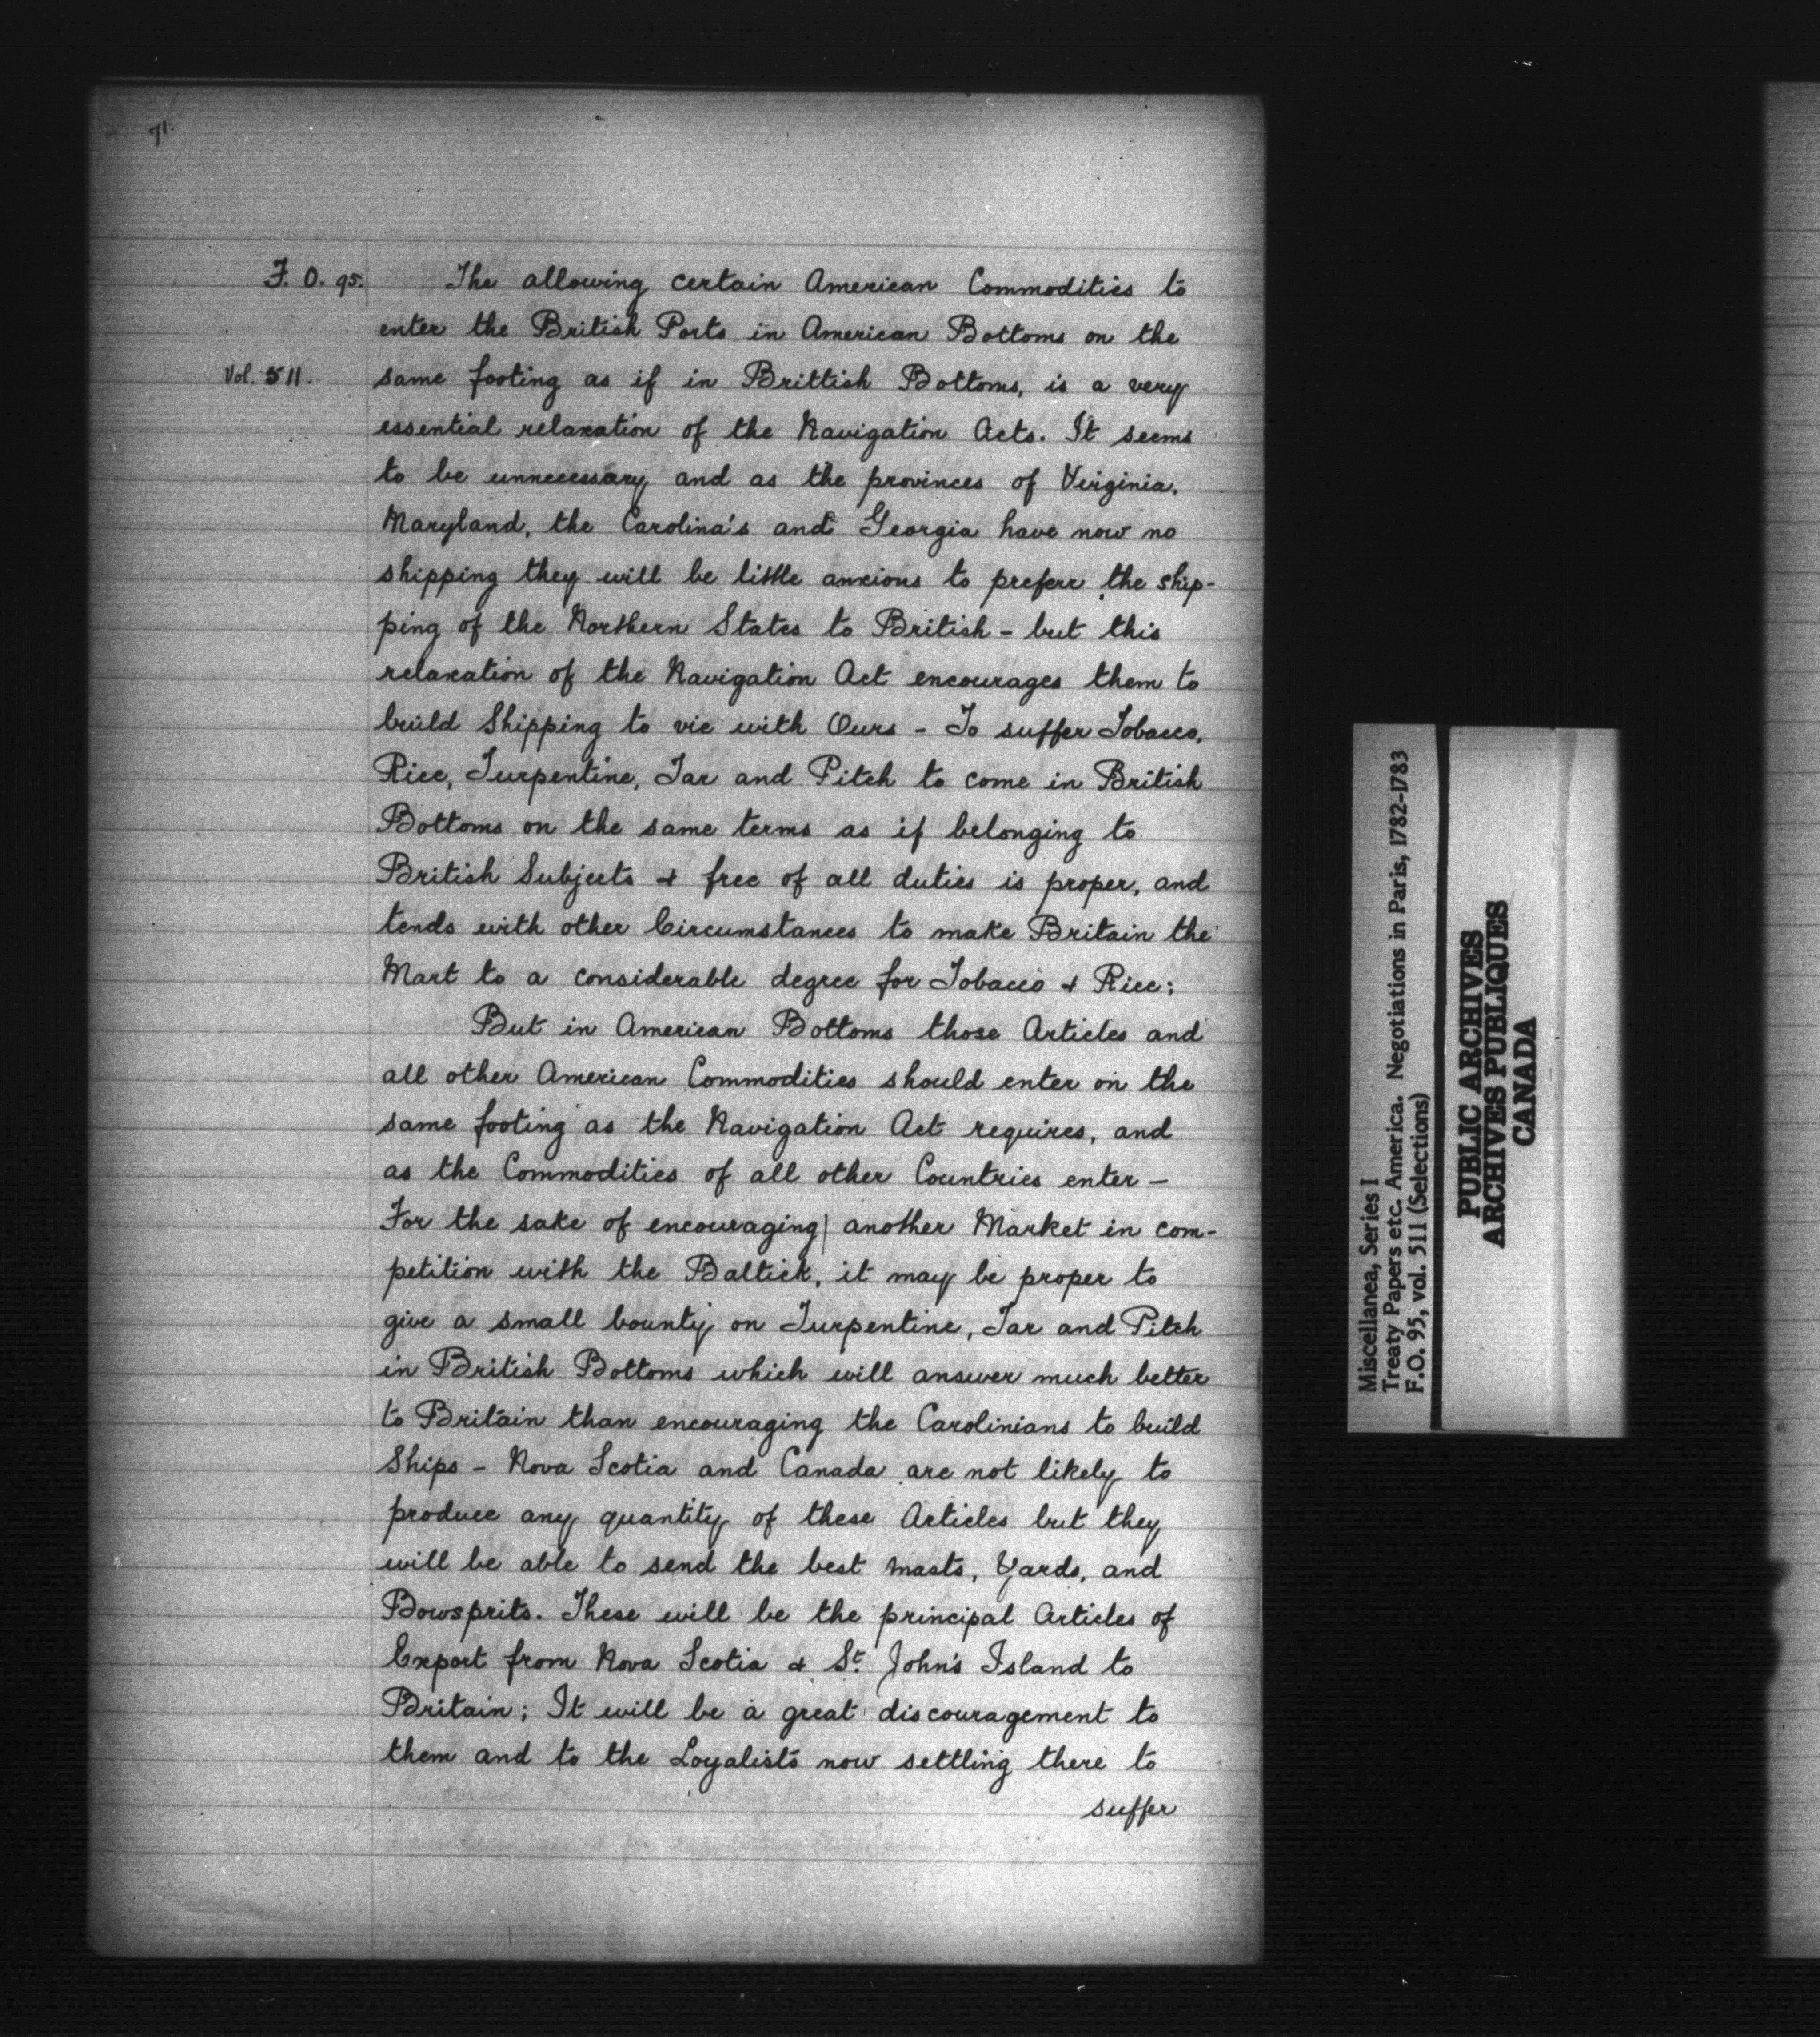 71.
F. O. 95.
Vol. 511.
The allowing certain American Commodities to
enter the British Ports in American Bottoms on the
same footing as if in Brittish Bottoms, is a very
essential relaxation of the Navigation Acts. It seems
to be unnecessary and as the provinces of Virginia,
Maryland, the Carolina's and Georgia have now no
shipping they will be little anxious to prefere the ship-
ping of the Northern States to British - but this
relaxation of the Navigation Act encourages them to
build Shipping to vie with Ours - To suffer Tobacco,
Rice, Turpentine, Tar and Pitch to come in British
Bottoms on the same terms as if belonging to
British Subjects & free of all duties is proper, and
tends with other Circumstances to make Britain the
Mart to a considerable degree for Tobacco & Rice;
But in American Bottoms those Articles and
all other American Commodities should enter on the
same footing as the Navigation Act requires, and
as the Commodities of all other Countries enter -
For the sake of encouraging another Market in com-
petition with the Baltick, it may be proper to
give a small bounty on Turpentine, Tar and Pitch
in British Bottoms which will answer much better
to Britain than encouraging the Carolinians to build
Ships - Nova Scotia and Canada are not likely to
produce any quantity of these Articles but they
will be able to send the best masts, Yards, and
Bowsprits. These will be the principal Articles of
Export from Nova Scotia & St. John's Island to
Britain; It will be a great discouragement to
them and to the Loyalists now settling there to
suffer
Miscellanea, Series I
Treaty Papers etc. America. Negotiations in Paris, 1782-1783
F.O. 95, vol. 511 (Selections)
PUBLIC ARCHIVES
ARCHIVES PUBLIQUES
CANADA